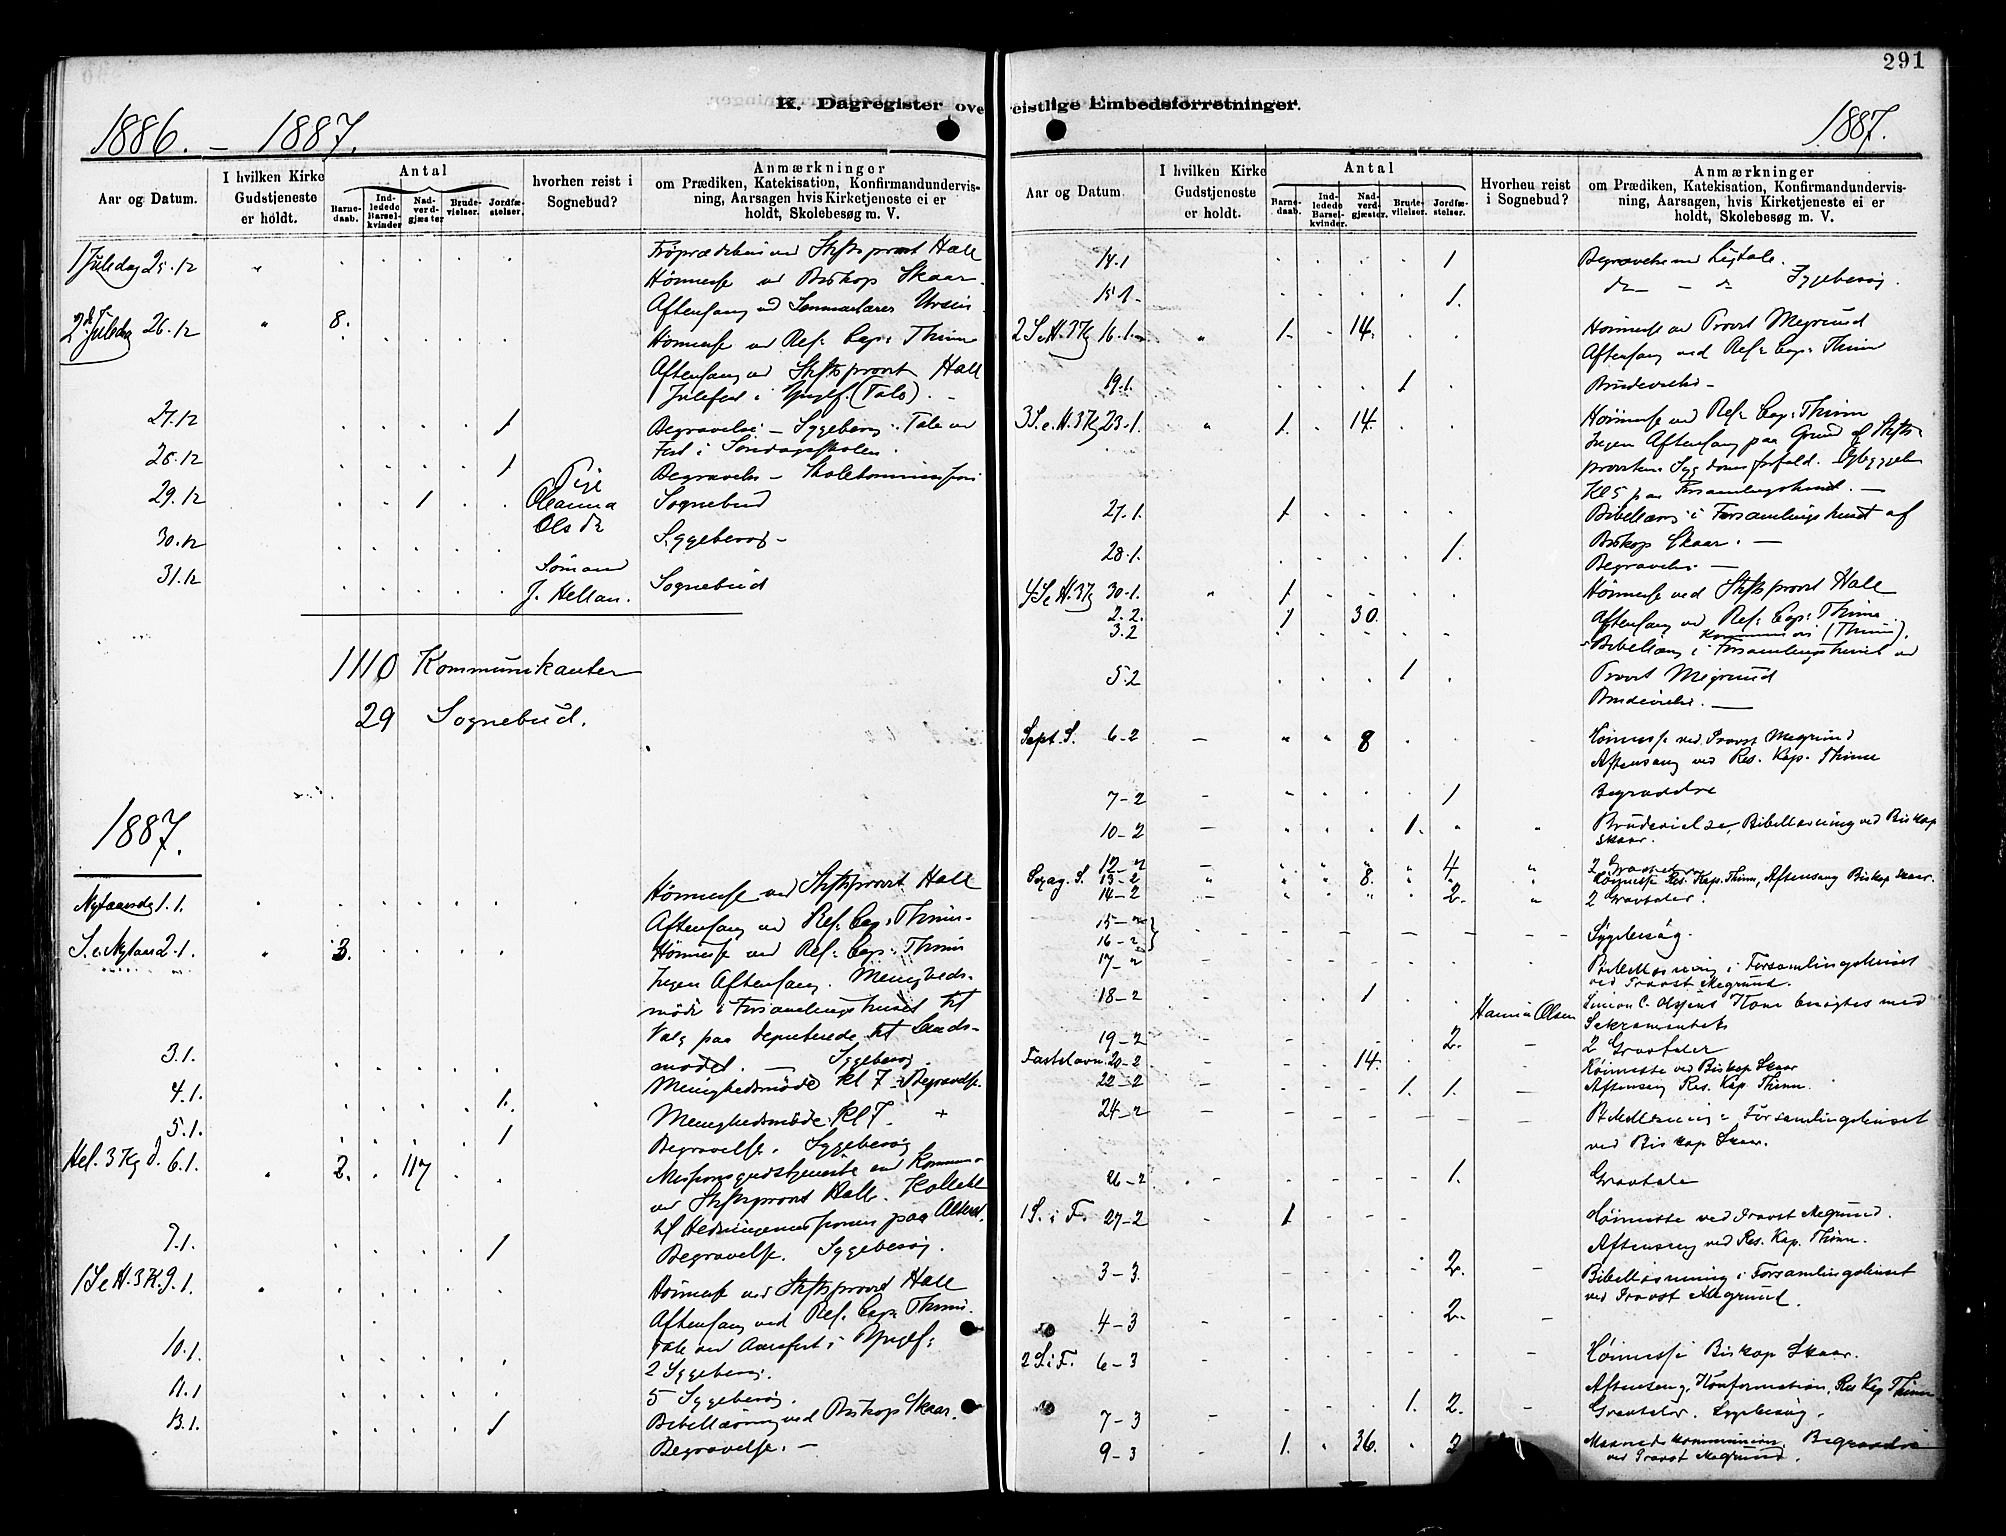 291
K. Dagregister ove
eistlige Embedsforretninger.
1886. - 1887.
Aar og Datum.
I hvilken Kirke
Gudstjeneste
er holdt.
Antal
Barne-
daab.
Ind-
ledede
Barsel-
kvinder
Nad-
verd-
gjæster
Brude-
vielser.
Jordfæ-
stelser.
hvorhen reist i
Sognebud?
Anmærkninger
om Prædiken, Katekisation, Konfirmandundervis-
ning, Aarsagen hvis Kirketjeneste ei er
holdt, Skolebesøg m. V.
1 Juledag 25.12 Stiftsprovst Hall
Høimesse ved Biskop Skaar.
Aftensang ved
2den Juledag 26.12 8. Høimesse ved Res: Cap: Thinn
Aftensang ved Stiftsprovst Hall
Julefest i Yngl.f. (Tale). -
27.12 1 Begravelse - Sygebesøg. Tale ved
Fest i Søndagsskolen.
28.12 1 Begravelse - Skolekommission
29.12 1 Pige Oleanna Olsdr Sognebud
30.12 Sygebesøg -
31.12 Sømand J. Hellan. Sognebud
1110 Kommunikanter
29 Sognebud.
1887.
Nytaarsdg 1.1. Høimesse ved Stiftsprovst Hall
Aftensang ved Res: Cap: Thinn.
S. e. Nytaar 2.1. 3. Høimesse ved Res: Cap: Thinn
Ingen Aftensang. Menigheds-
møde i Forsamlingshuset til
Valg paa deputerede til Lands-
mødet. -
3.1. Sygebesøg.
Menighedsmøde kl 7 -
4.1. 1. Begravelse.
Menighedsmøde kl 7.
5.1. 1 Begravelse. Sygebesøg
Hel. 3 Kg d. 6.1. 2. 117 Missionsgudstjeneste
ved Stiftsprovst Hall. Kollekt
til Hedningemissionen paa Alteret.
7.1. 1 Begravelse. Sygebesøg.
1 S e H. 3 K. 9.1. Høimesse ved Stiftsprovst Hall
Aftensang ved Res: Cap: Thinn.
Tale ved Aarsfest i Yngl.f:
10.1. 2 Sygebesøg.
11.1 5 Sygebesøg.
13.1. 1 Bibellæsning ved Biskop Skaar.
Begravelse. -
1887.
Aar og Datum.
I hvilken Kirke
Gudstjeneste
er holdt.
Antal
Barne-
daab.
Ind-
ledede
Barsel-
kvinder.
Nad-
verd-
gjæster.
Brude-
vielser.
Jordfæ-
stelser.
Hvorheu reist
i Sognebud?
Anmærkninger
om Prædiken, Katekisation, Konfirmandundervis-
ning, Aarsagen, hvis Kirketjeneste ei er
holdt, Skolebesøg m. V.
14.1 1 Begravelse med Ligtale.
15.1. 1. do - - do Sygebesøg.
2 S e H. 3 Kg 16.1. 1. 14. Høimesse ved Provst Megrund
Aftensang ved Res: Cap: Thinn
19.1. 1 Brudevielse -
3 S. e. H. 3 Kg 23.1. 1. 14. Høimesse ved Res: Cap: Thinn
Ingen Aftensang paa Grund af Stifts-
provstens Sygdomsforfald.
Kl 5 paa Forsamlingshuset. -
27.1. 1 Bibellæsn i Forsamlingshuset af
Biskop Skaar. -
28.1. 1. Begravelse. -
4 S e H. 3 Kg 30.1. 1 Høimesse ved Stiftsprovst Hall
Aftensang ved Res: Cap: Thinn.
2.2. 1 30. Kommunion (Thinn).
3.2 Bibellæsn i Forsamlingshuset ved
Provst Megrund
5.2 1 Brudevielse. -
Sept. S. 6-2 8 Høimesse ved Provst Megrund
Aftensang ved Res. Kap. Thinn
7-2 1 Begravelse
10-2 1. Brudevielse, Bibellæsning ved Biskop
Skaar.
12-2 4. 2 Gravtaler.
Sexag. S. 13-2 8. Høimesse Res. Kap. Thinn, Aftensang Biskop Skaar.
14-2 2. 2 Gravtaler.
15-2
16-2 Sygebesøg.
17-2 Bibellæsning i Forsamlingshuset
ved Provst Megrund.
18-2 1 Hanna Olsen Simon C. Olsens Kone besøgtes med
Sakramentet
19-2 2. 2 Gravtaler
Fastelavn 20-2 14. Høimesse ved Biskop Skaar
Aftensang Res. Kap. Thinn.
22-2 1. 1.
24-2 Bibellæsning i Forsamlingshuset
ved Biskop Skaar.
26-2 1. Gravtale
1 S. i F. 27-2 1 Høimesse ved Provst Megrund.
Aftensang ved Res. Kap. Thinn.
3-3. 2. Bibellæsning i Forsamlingshuset
ved Provst Megrund.
4-3 2.
2 S. i F. 6-3 Høimesse Biskop Skaar.
Aftensang, Konfirmation, Res Kap Thinn
7-3 1. 2. Gravtaler. Sygebesøg.
9-3 1. 36. 2 Maanedskommunion. Begravelse
ved Provst Megrund.